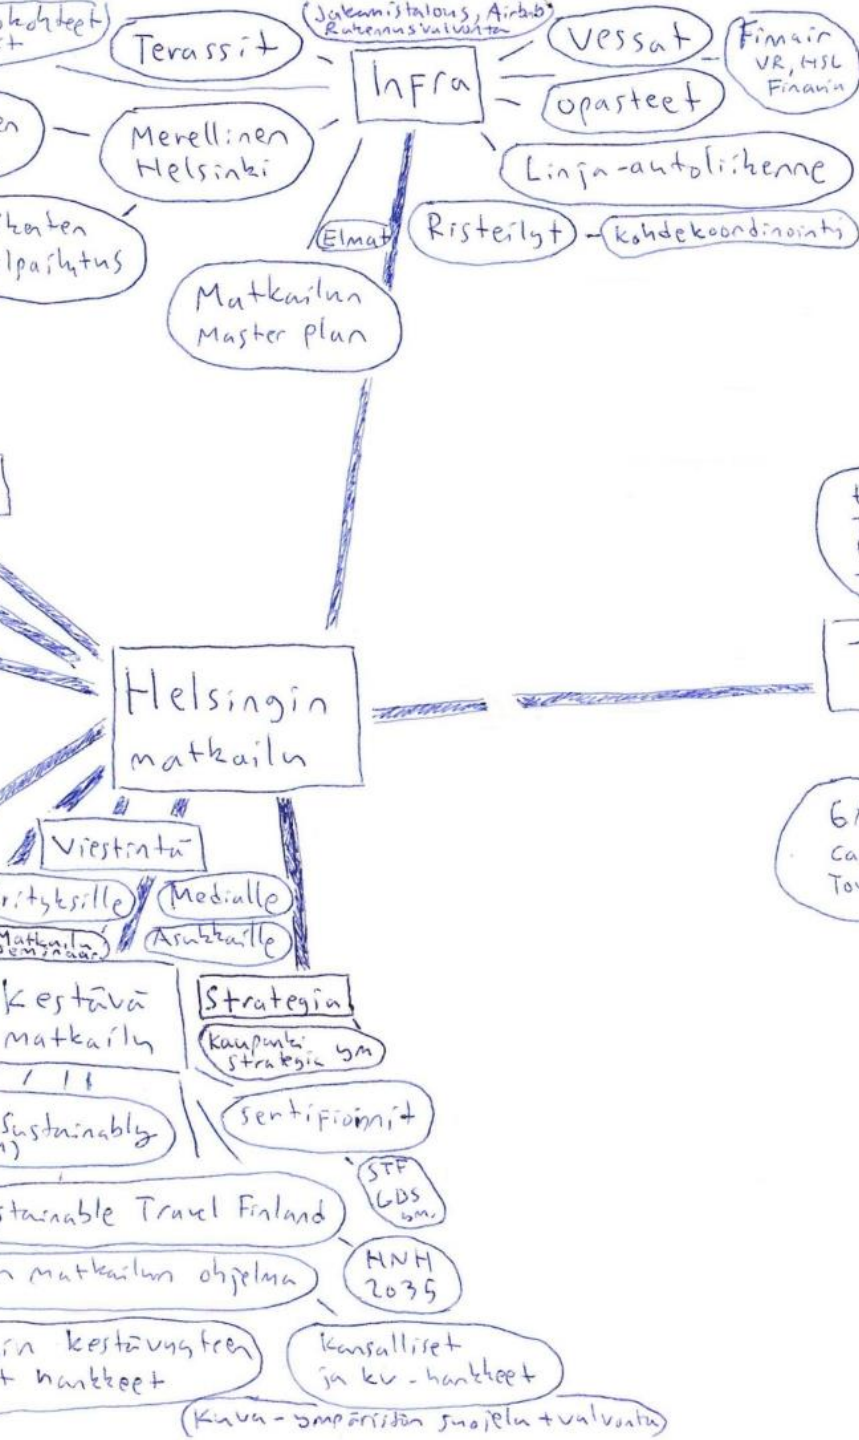 Jakamistalous, Airbnb
Rakennusvalvonta
kohteet
et
Terassit
Infra
Vessat
Finnair
VR, HSL
Finavia
opasteet
en
Merellinen
Helsinki
Linja-autoliikenne
Elmat
Risteilyt
kohdekoordinointi
lpailutus
Matkailun
Master plan
Helsingin
matkailu
Viestintä
rityksille
Medialle
Matkailu
seminaar
Asukkaille
Kestävä
matkailu
Strategia
kaupunki
strategia ym
Sustainably
sertifioinnit
STF
GDS
ym.
stainable Travel Finland
n matkailun ohjelma
HNH
2035
in kestävyyteen
t hankkeet
kansalliset
ja kv-hankkeet
Kuva-ympäristön suojelu + valvonta